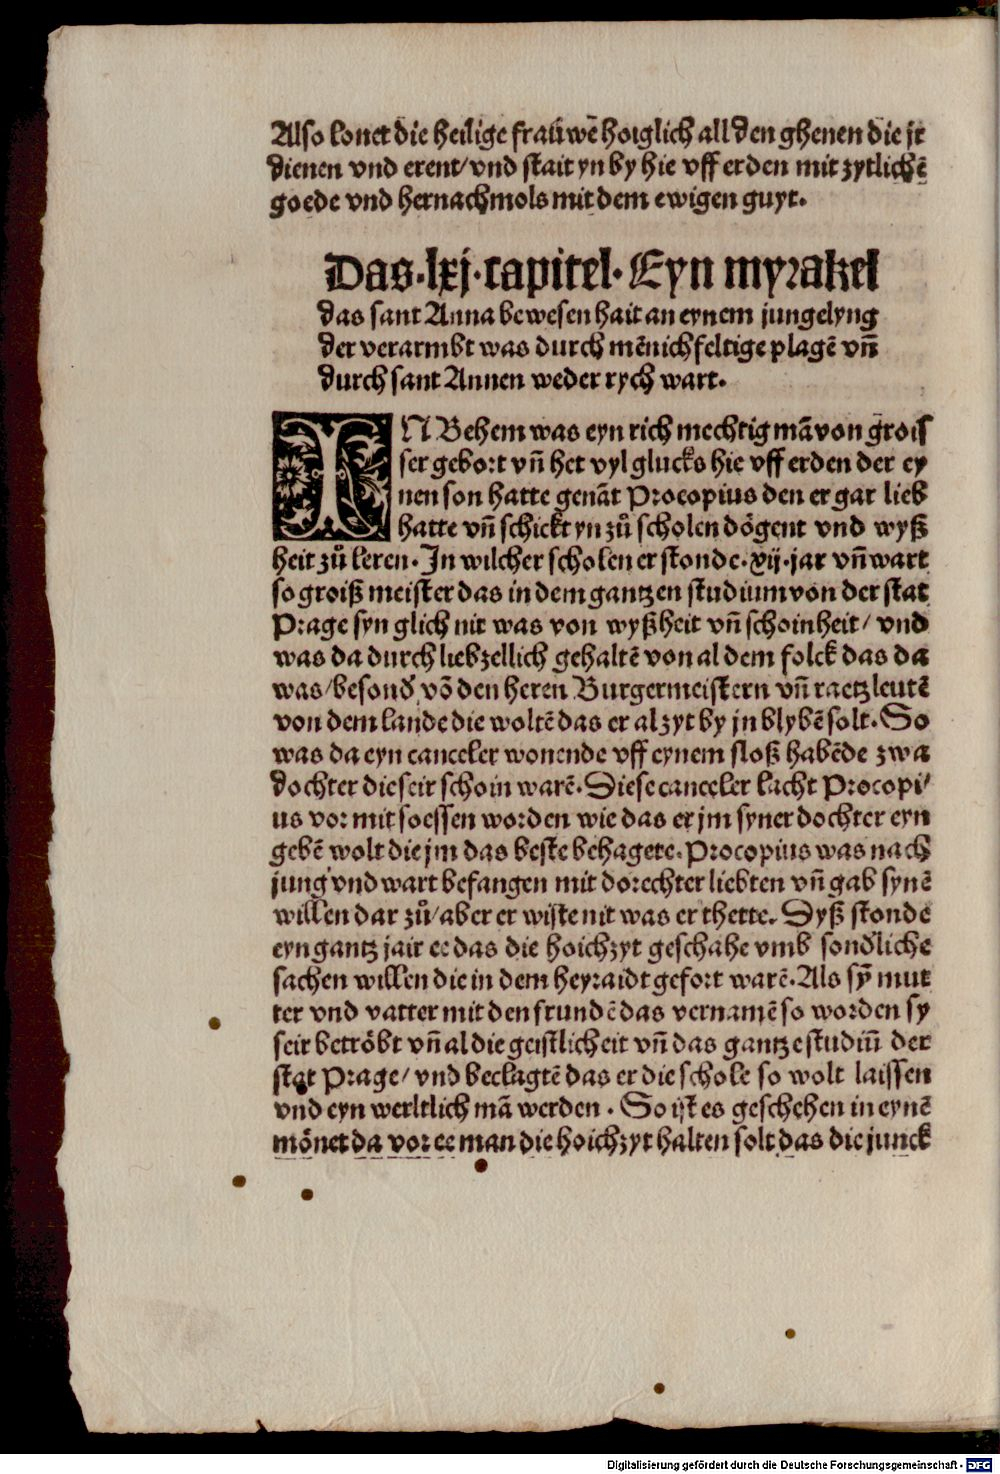 Also lonet die heilige frauwē hoiglich all den ghenen die jr
dienen vnd erent/vnd stait yn by hie vff erden mit zytlichē
goede vnd hernachmols mit dem ewigen guyt.
Das.lxj.capitel.Eyn myrakel
das sant Anna bewesen hait an eynem jungelyng
der verarmbt was durch mēnichfeltige plagē vñ
durch sant Annen weder rych wart.
IN Behem was eyn rich mechtig mā von grois
ser gebort vñ het vyl glucks hie vff erden der ey
nen son hatte genāt Procopius den er gar lieb
hatte vñ schickt yn zů scholen dögent vnd wyß
heit zů leren. In wilcher scholen er stonde.xij.jar vñ wart
so groiß meister das in dem gantzen studium von der stat
Prage syn glich nit was von wyßheit vñ schoinheit/ vnd
was da durch liebzellich gehaltē von al dem folck das da
was/besonđ vō den heren Burgermeistern vñ raetzleutē
von dem lande die woltē das er alzyt by jn blybē solt. So
was da eyn canceler wonende vff eynem sloß habēde zwa
dochter die seir schoin warē. Diese canceler lacht Procopi/
us vor mit soessen worden wie das er jm syner dochter eyn
gebē wolt die jm das beste behagete. Procopius was nach
jung vnd wart befangen mit dorechter liebten vñ gab synē
willen dar zů/aber er wiste nit was er thette. Dyß stonde
eyn gantz jair ee das die hoichzyt geschahe vmb sonđliche
sachen willen die in dem heyraidt gefort warē. Als sȳ mut
ter vnd vatter mit den frundē das vernamē so worden sy
seir betröbt vñ al die geistlicheit vñ das gantze studiū der
stat Prage/ vnd beclagtē das er die schole so wolt laissen
vnd eyn werltlich mā werden. So ist es geschehen in eynē
mönet da vor ee man die hoichzyt halten solt das die junck
Digitalisierung gefördert durch die Deutsche Forschungsgemeinschaft - DFG